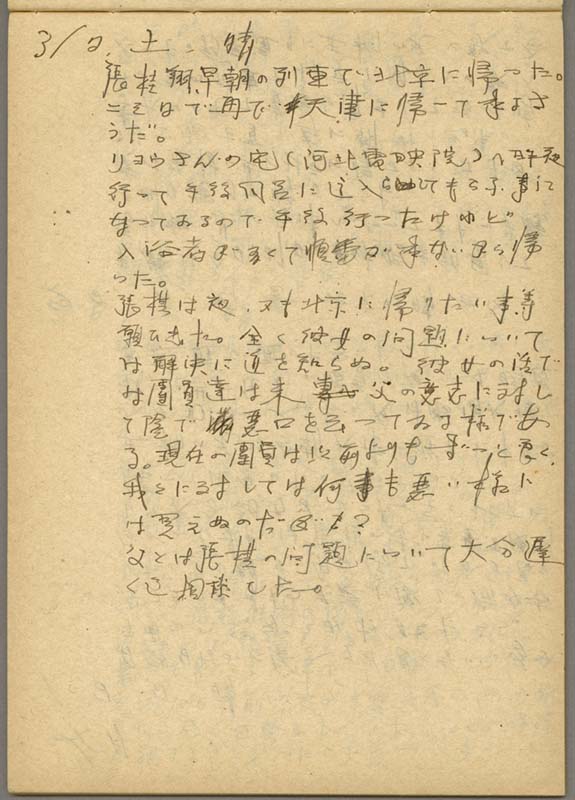 31日、土、晴
張桂翔早朝の列車で北京に帰った。
二三日で再び天津に帰って来よさ
うだ。
リョウさんの宅(河北電映院)へ昨夜
行って午後風呂に這入らしてもらふ事に
なってあるので午後行ったけれど
入浴者が多くて順番が来ないから帰
った。
張棋は夜、又も北京に帰りたい事等
願ひ出た。全く彼女の問題について
は解決に道を知らぬ。彼女の話で
は團員達は来 父の意志に対し
て陰で 悪口を云ってゐる様であ
る。現在の團員は以前よりもずっと良く、
我々に対しては何事も悪い様に
は見えぬのだが?
父とは張棋の問題について大分遅
く迄相談した。